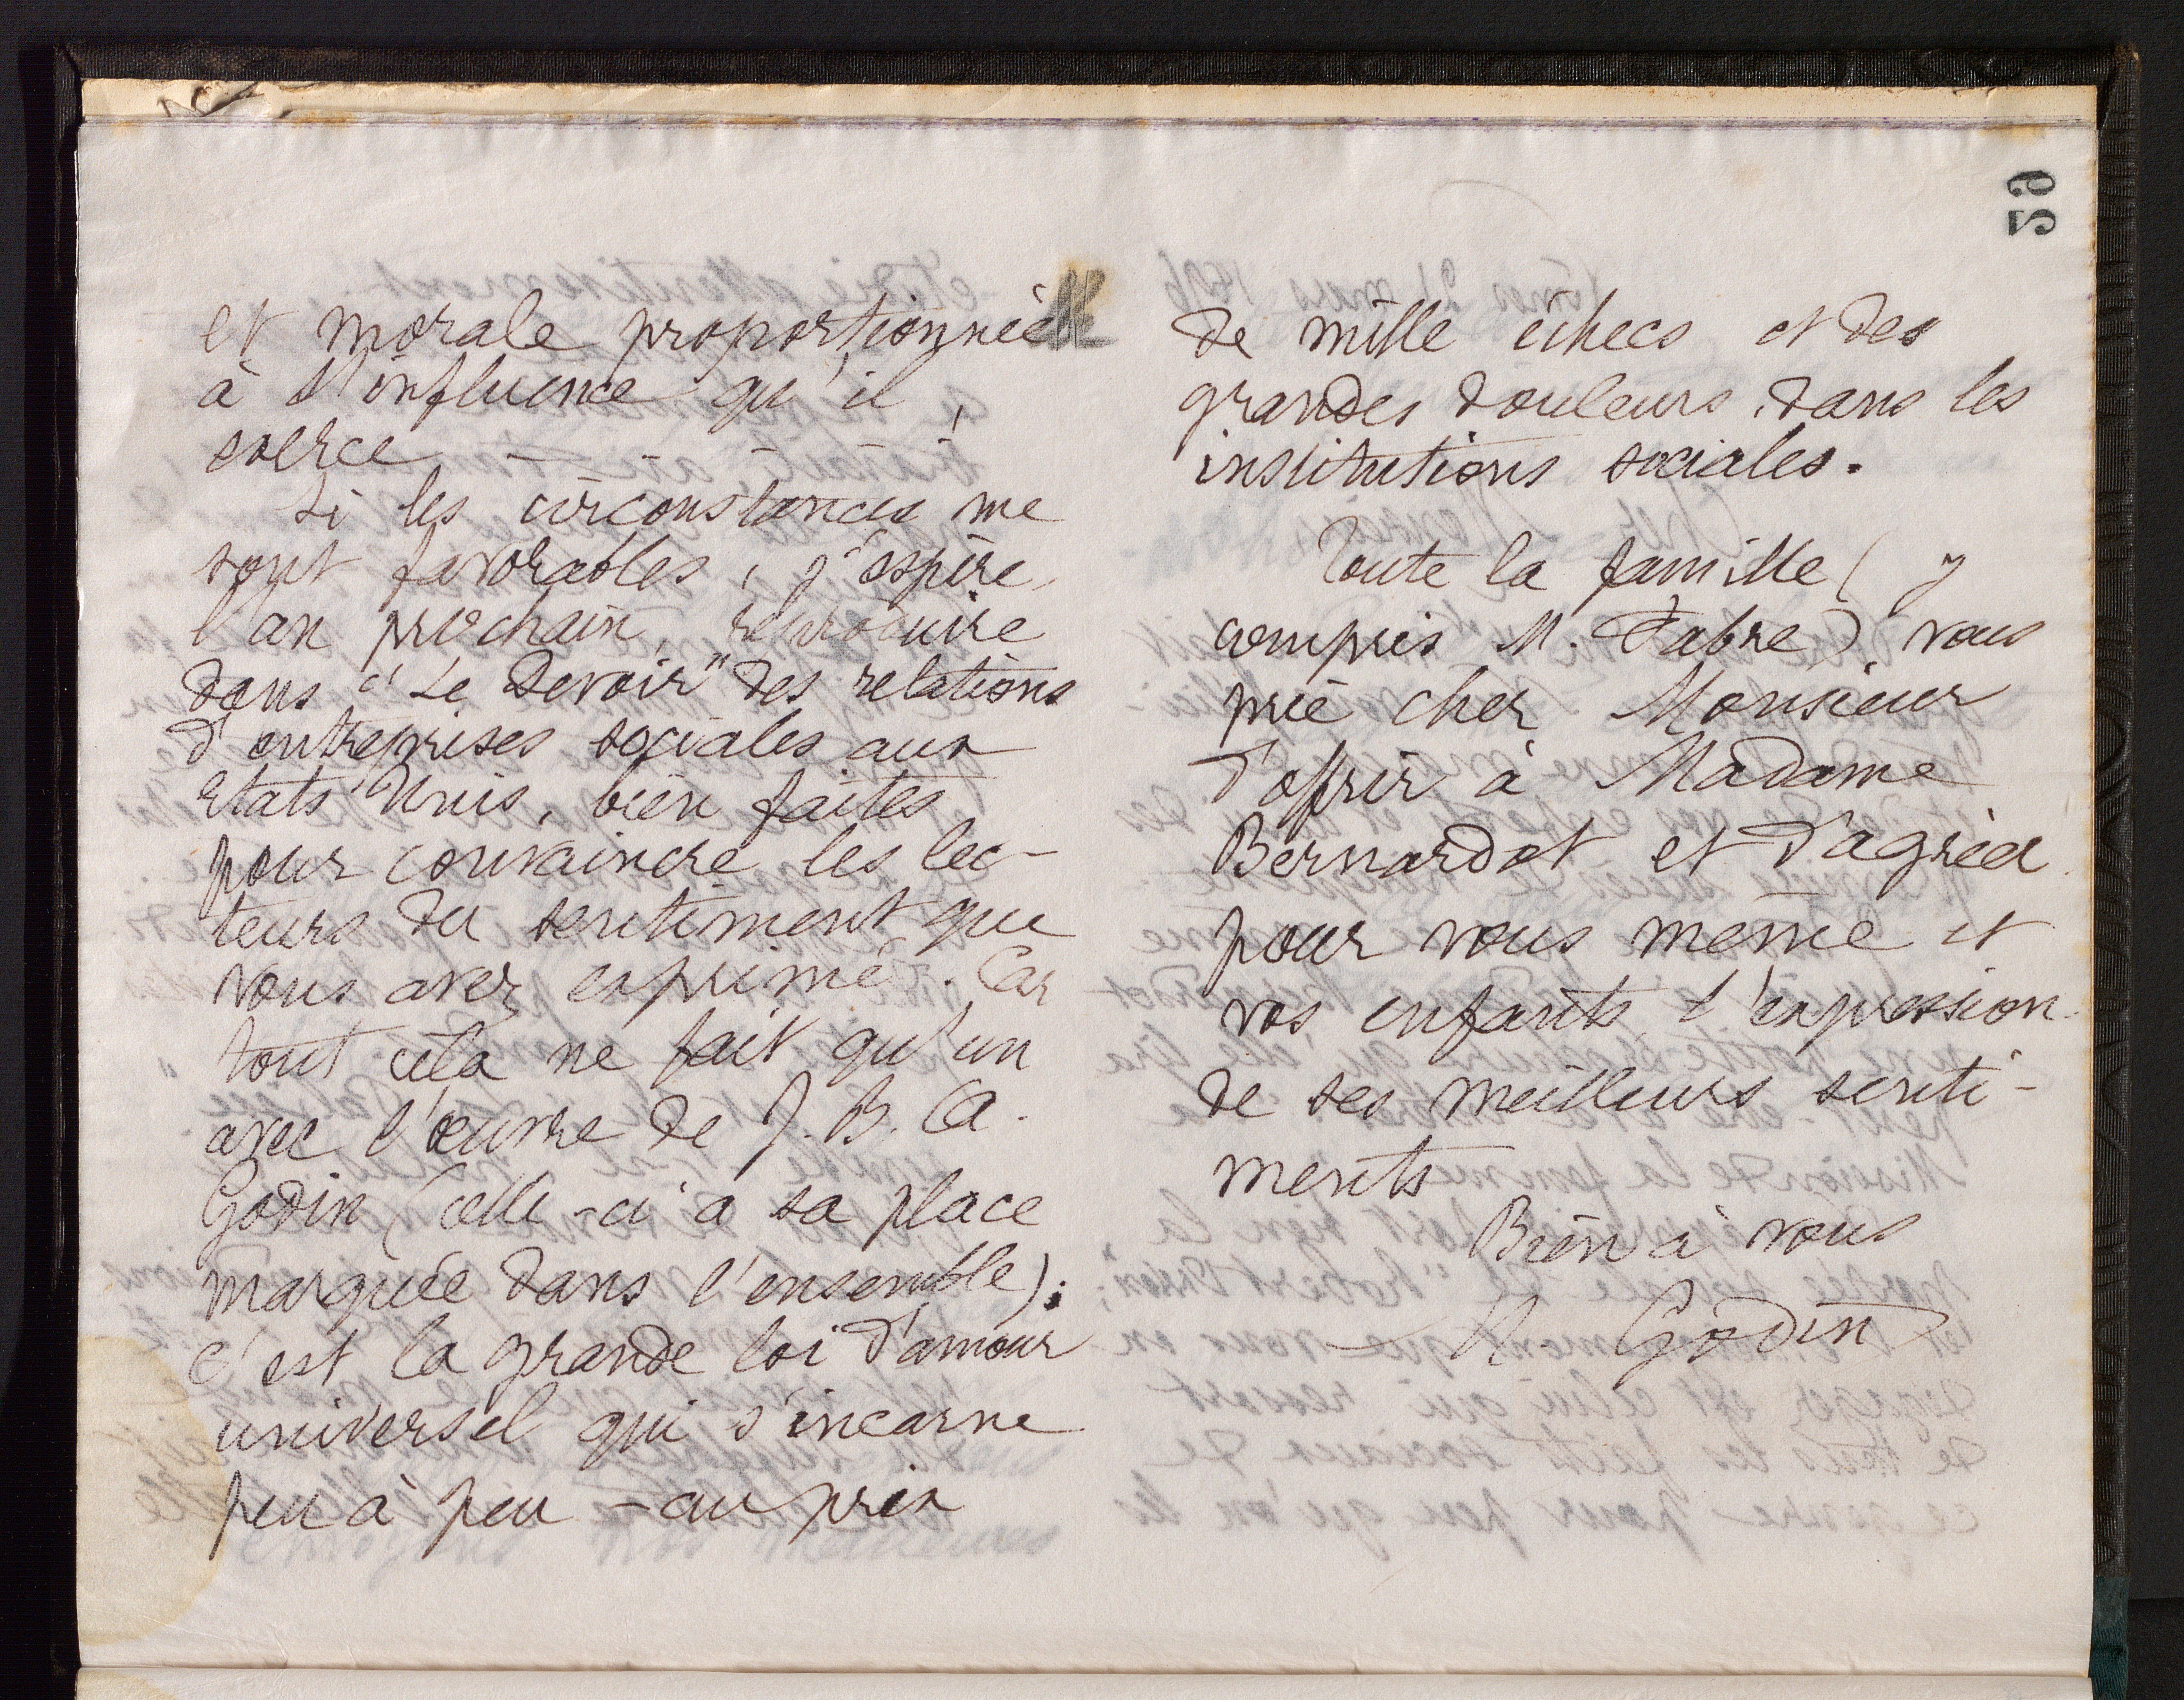 59
et morale proportionnée
à l'influence qu'il
exerce - - - - -
Si les circonstances me
sont favorables, j'espère,
l'an prochain, reproduire
dans "Le Devoir" des relations
d'entreprises sociales aux
Etats Unis, bien faites
pour convaincre les lec-
teurs du sentiment que
vous avez exprimé. Car
tout cela ne fait qu'un
avec l'œuvre de J. B. A.
Godin (celle-ci a sa place
marquée dans l'ensemble);
c'est la grande loi d'amour
universel qui s'incarne
peu à peu - au prix
de mille échecs et des
grandes douleurs, dans les
institutions sociales.
Toute la famille (y
compris M. Fabre) vous
prie cher Monsieur
d'offrir à Madame
Bernardot et d'agréer
pour vous même et
vos enfants l'expression
de ses meilleurs senti-
ments
Bien à vous
M. Godin